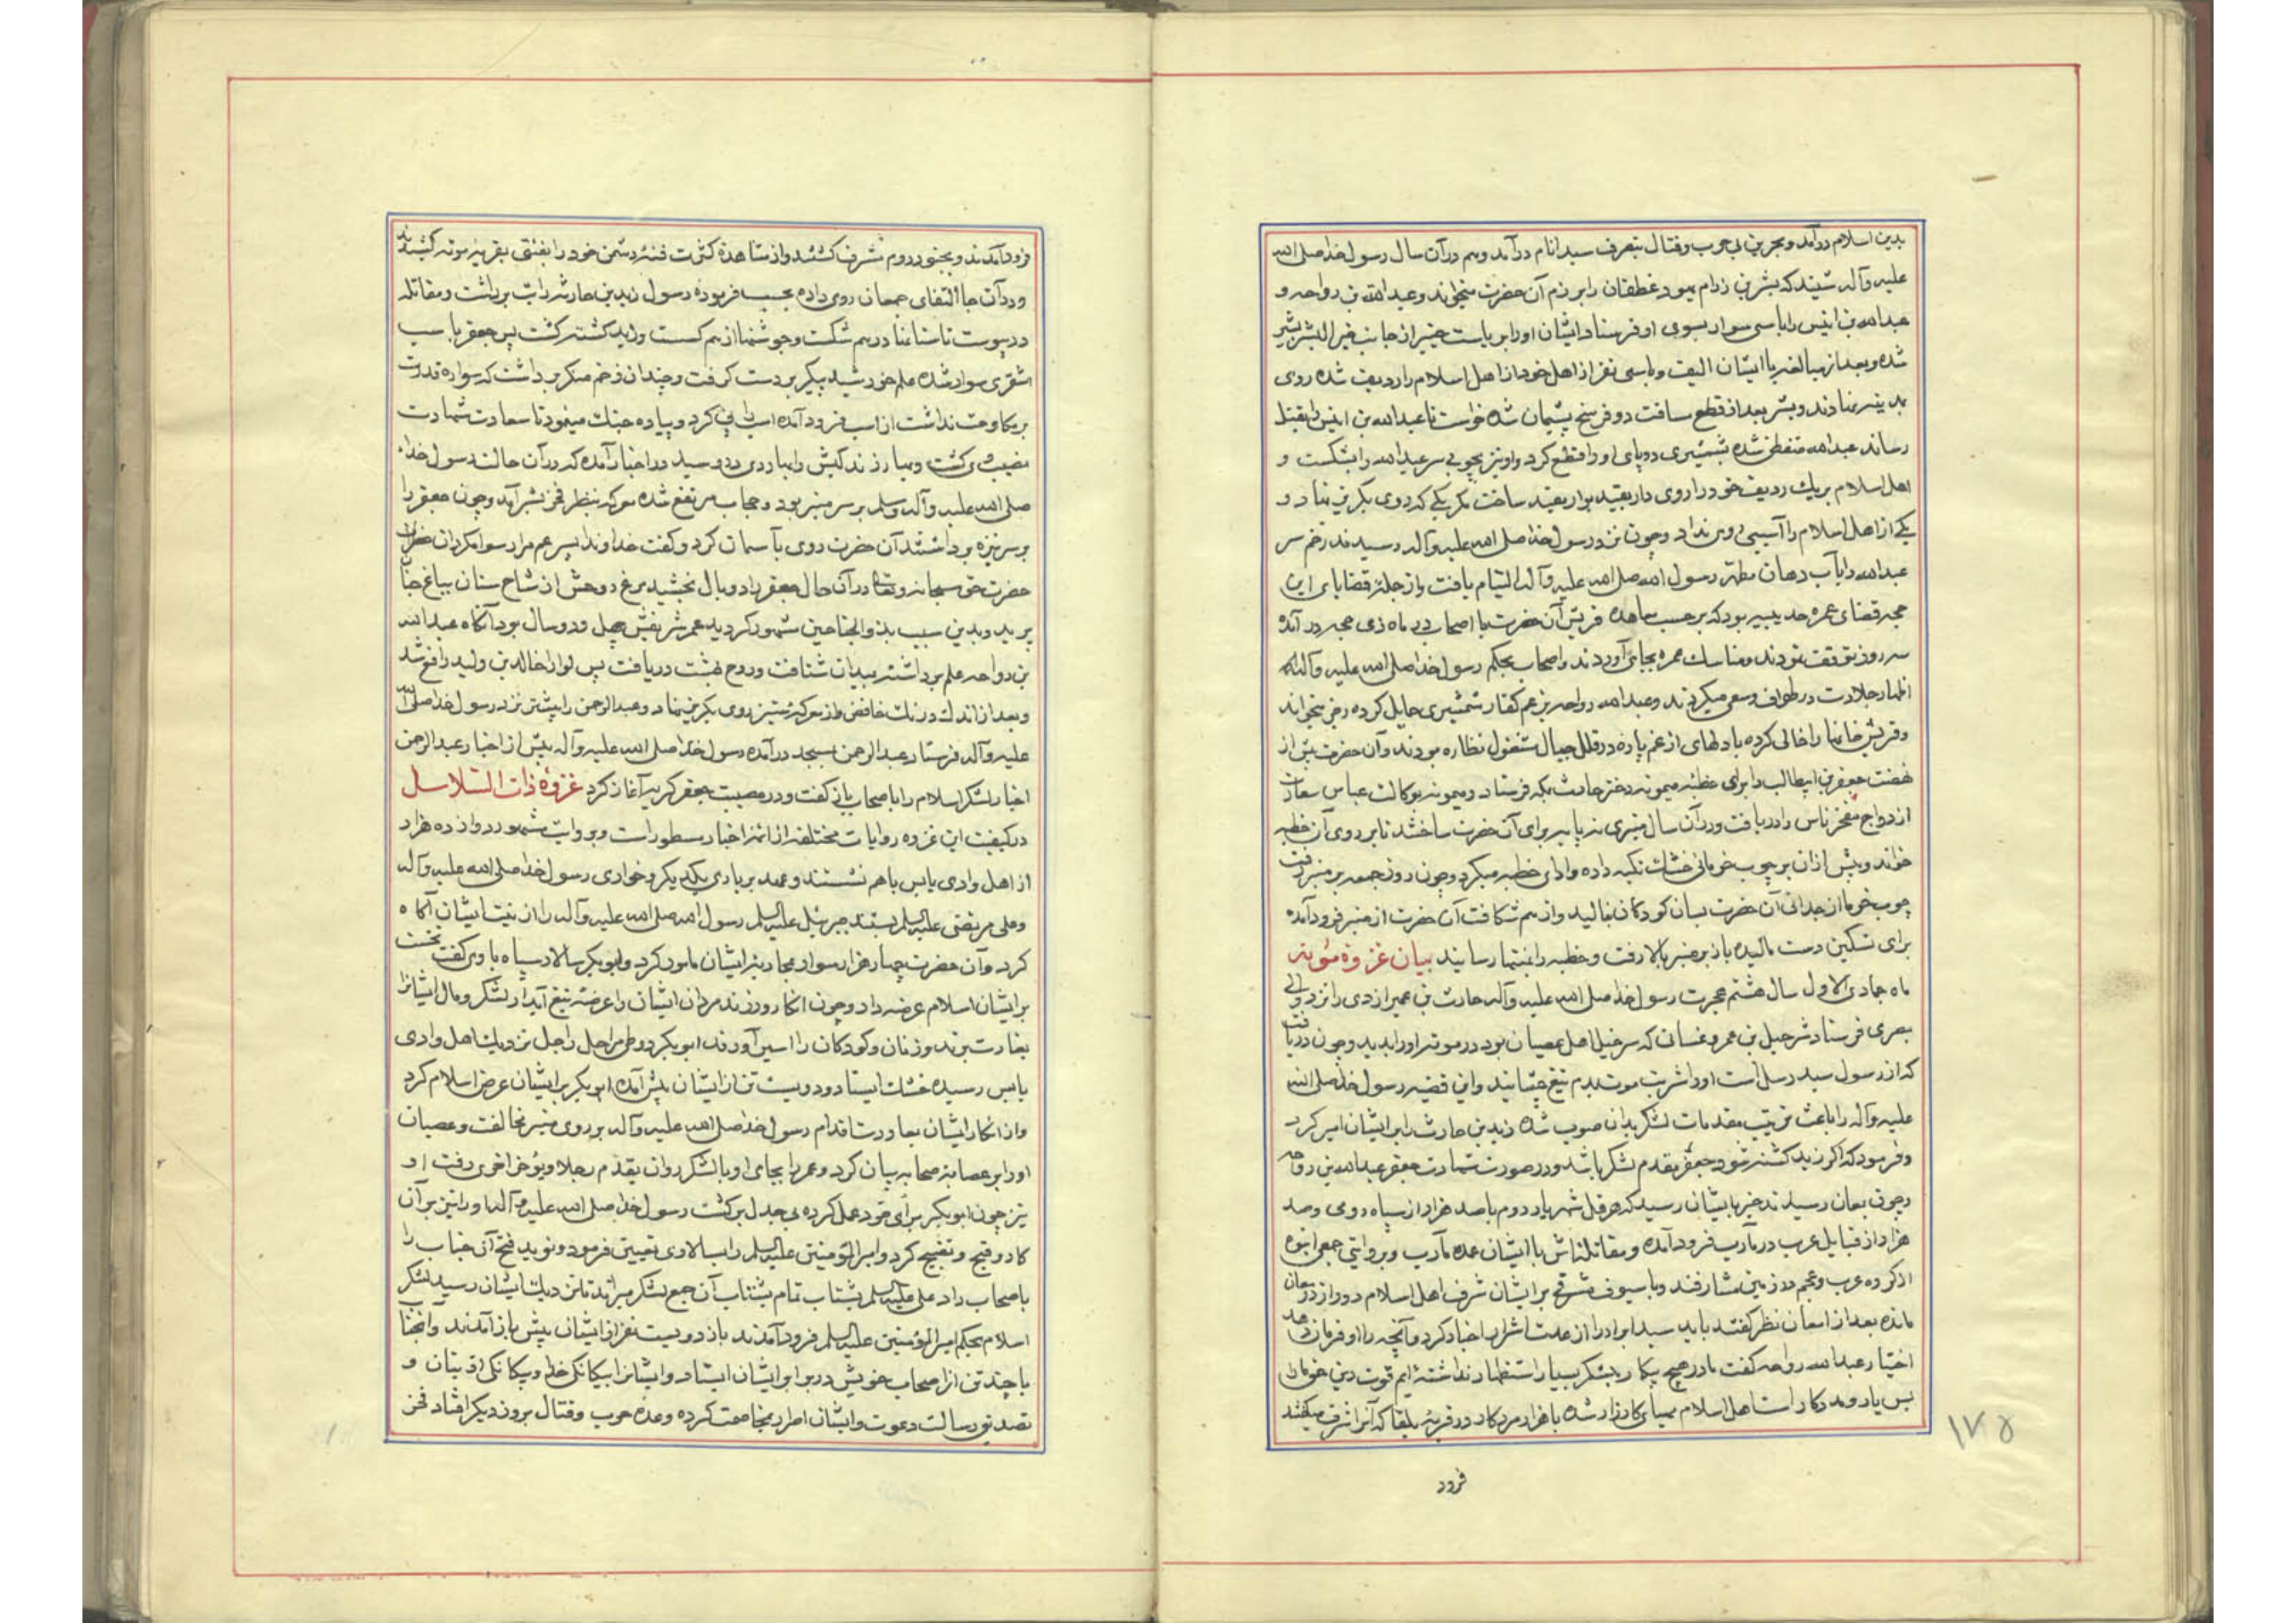 بدین اسلام درآمد و بحرین بی حرب و قتال بتصرف سید انام درآمد و هم در آن سال رسول خدا صلی الله
علیه و آله شنید که بشر بن زرام یهود غطفان را برزم آن حضرت میخواند و عبدالله بن رواحه و
عبدالله بن انیس را با سی سوار بسوی او فرستاد ایشان او را بریاست خیبر از جانب خیر البشر بشیر
شده و بعد از مبالغه با ایشان الیف و با سی نفر از اهل خود از اهل اسلام را ردیف شده روی
بمدینه نهادند و بشر بعد از قطع مسافت دو فرسخ پشیمان شده خواست تا عبدالله بن انیس را بقتل
رساند عبدالله متفطن شده بشمشیری دو پای او را قطع کرد و او نیز بچوبی سر عبدالله را بشکست و
اهل اسلام هر یک ردیف خود را روی دار بقید بوار مقید ساخت مگر یکی که روی بگریز نهاد و
یکی از اهل اسلام را آسیبی روی نداد و چون نزد رسول خدا صلی الله علیه و آله رسیدند زخم سر
عبدالله را بآب دهان مطهر رسول الله صلی الله علیه و آله التیام یافت و از جمله قضایای این
حجه قضای عمره حدیبیه بود که بر حسب معاهده قریش آن حضرت با اصحاب در ماه ذی حجه در آمده
سه روز توقف نمودند و مناسک عمره بجای آوردند و اصحاب بحکم رسول خدا صلی الله علیه و آله
اظهار جلادت در طواف و سعی میکردند و عبدالله رواحه بزعم کفار شمشیری حمایل کرده رجز میخواند
و قریش خانها را خالی کرده با دلهای از غم پاره در قلل جبال مشغول نظاره بودند و آن حضرت پیش از
نهضت جعفر بن ابیطالب را برای خطبه میمونه دختر حارث بمکه فرستاد و میمونه بوکالت عباس سعادت
ازدواج مفخر ناس را دریافت و در آن سال منبری سه پایه برای آن حضرت ساختند تا بر روی آن خطبه
خواند و پیش از آن بر چوب خرمائی خشک تکیه داده و ادای خطبه میکرد و چون روز جمعه بر منبر رفت
چوب خرما از جدائی آن حضرت بسان کودکان بنالید و از هم شکافت آن حضرت از منبر فرود آمده
برای تسکین دست مالیده باز بر منبر بالا رفت و خطبه را بانتها رسانید بیان غزوه موته
ماه جمادی الاول سال هشتم هجرت رسول خدا صلی الله علیه و آله حارث بن عمیر ازدی را نزد والی
بصری فرستاد شرحبیل بن عمرو غسانی که سرخیل اهل عصیان بود در موته او را بدید و چون دریافت
که از رسول سید رسل است او را شربت موت بدم تیغ چشانید و این قضیه رسول خدا صلی الله
علیه و آله را باعث ترتیب مقدمات لشکر بدان صوب شده زید بن حارثه را بر ایشان امیر کرد
و فرمود که اگر زید کشته شود جعفر مقدم لشکر باشد و در صورت شهادت جعفر عبدالله بن رواحه
و چون بمعان رسیدند خبر بایشان رسید که هرقل شهریار روم با صد هزار از سپاه رومی و صد
هزار از قبایل عرب در مآرب فرود آمده و مقاتلتش با ایشان عمده مآرب و بروایتی جمعی انبوه
از گروه عرب و عجم در زمین مشارفند و با سیوف مشرقی بر ایشان مشرف اهل اسلام دو روز در معان
مانده بعد از امعان نظر گفتند باید سید ابرار را از عدت اشرار اخبار کرد و آنچه را او فرمان دهد
اختیار عبدالله رواحه گفت ما در هیچ پیکار بلشکر بسیار استظهار نداشته ایم قوت دین خودمان
بس یار و مددکار است اهل اسلام مهیای کارزار شده با هزار مرد کار در قریه بلقا که آنرا شرف میگفتند
فرود
۱۷۵
فرود آمدند و بجنود روم مشرف گشتند و از مشاهده کثرت فئه دشمن خود را بفئتی بقریه موته کشیدند
و در آن جا التقای جمعان روی داده بحسب فرموده رسول زید بن حارثه رایت برداشت و مقاتله
در پیوست تا سنانها در هم شکست و جوشنها از هم گسست و زید کشته گشت پس جعفر با اسب
اشقری سوار شده علم خورشید پیکر بر دست گرفت و چندان زخم منکر برداشت که سواره قدرت
بر مکاوحت نداشت از اسب فرود آمده اسب را پی کرد و پیاده جنگ مینمود تا سعادت شهادت
نصیب وی گشت و مبارزند کیش را بمبارزی رسید در اخبار آمده که در آن حالت رسول خدا
صلی الله علیه و آله و سلم بر سر منبر بود و حجاب مرتفع شده معرکه بنظر فخر بشر آمد و چون جعفر را
بر سر نیزه برداشتند آن حضرت روی بآسمان کرد و گفت خداوندا پسر عم مرا رسوا مگردان
حضرت حق سبحانه و تعالی در آن حال جعفر را دو بال بخشید مرغ روحش از شاخ سنان بباغ جنان
پرید و بدین سبب بذو الجناحین مشهور گردید عمر شریفش چهل و دو سال بود آنگاه عبدالله
بن رواحه علم برداشته بمیدان شتافت و روح بهشت دریافت پس لوا را خالد بن ولید رافع شد
و بعد از اندک درنگ خافض و از معرکه ستیز روی بگریز نهاد و عبدالرحمن را پیشتر نزد رسول خدا صلی الله
علیه و آله فرستاد عبدالرحمن بمسجد درآمده رسول خدا صلی الله علیه و آله پیش از اخبار عبدالرحمن
اخبار لشکر اسلام را باصحاب باز گفت و در مصیبت جعفر گریه آغاز کرد غزوه ذات السلاسل
در کیفیت این غزوه روایات مختلفه از ائمه اخبار مسطور است و بروایت مشهور دوازده هزار
از اهل وادی یابس با هم نشستند و عهد بر یاری یکدیگر و خواری رسول خدا صلی الله علیه و آله
و علی مرتضی علیه السلم بستند جبرئیل علیه السلم رسول الله صلی الله علیه و آله را از نیت ایشان آگاه
کرد و آن حضرت چهار هزار سوار بمحاربه ایشان مامور کرد و ابوبکر سالار سپاه باوی گفت نخست
بر ایشان اسلام عرضه دار و چون انکار ورزند مردان ایشان را عرضه تیغ آبدار لشکر و مال ایشانرا
بغارت برند و زنان و کودکان را اسیر آورند ابوبکر در طی مراحل راجل نزدیک اهل وادی
یابس رسیده خشک ایستاد و دویست تن از ایشان پیش آمده ابوبکر بر ایشان عرض اسلام کرد
و از انکار ایشان بمعاودت اقدام رسول خدا صلی الله علیه و آله بر روی منبر مخالفت و عصیان
او را بر عصابه صحابه بیان کرد و عمر را بجای او با لشکر روان یقدم رجلا و یؤخر اخری رفت او
نیز چون ابوبکر برای خود عمل کرده بی جدل برگشت رسول خدا صلی الله علیه و آله او را نیز بر آن
کار و قبح و تقبیح کرد و امیر المؤمنین علیه السلم را بسالاری تعیین فرمود و نوید فتح آن جناب را
باصحاب داد علی علیه السلم بشتاب تمام بشتاب آن جمع لشکر میراند تا نزدیک ایشان رسید لشکر
اسلام بحکم امیر المؤمنین علیه السلم فرود آمدند باز دویست نفر از ایشان پیش باز آمدند و آنجناب
با چند تن از اصحاب خویش در برابر ایشان ایستاد و ایشانرا بیگانگی خدا و
تصدیق رسالت دعوت و ایشان اصرار بمخاصمت کرده وعده حرب و قتال بروز دیگر افتاد فخر